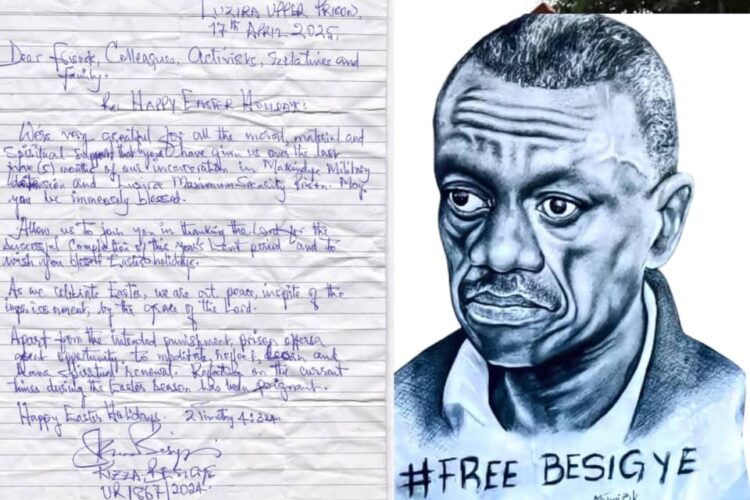 LUZIRA UPPER PRISON,
17th APRIL 2025.
Dear friends, Colleagues, Activists, Relatives and
family.
Re: HAPPY EASTER HOLIDAY!
We're very grateful for all the moral, material and
Spiritual support that you have given us over the last
five (5) months of our incarceration in Makindye Military
detension and Luzira Maximum Security Prison. May
you be immensely blessed.
Allow us to join you in thanking the Lord for the
successful Completion of this year's Lent period and to
wish you blessed Easter holidays.
As we celebrate Easter, we are at peace, inspite of the
imprisonment, by the grace of the Lord.
Apart from the intended punishment, prison offers a
great opportunity to meditate, reflect, and
Spiritual renewal. Reflection on the current
times during the Easter Season has been poignant.
Happy Easter Holidays. 2 Timothy 4:
KIZZA BESIGYE
UR 1867/2024.
#FREE BESIGYE